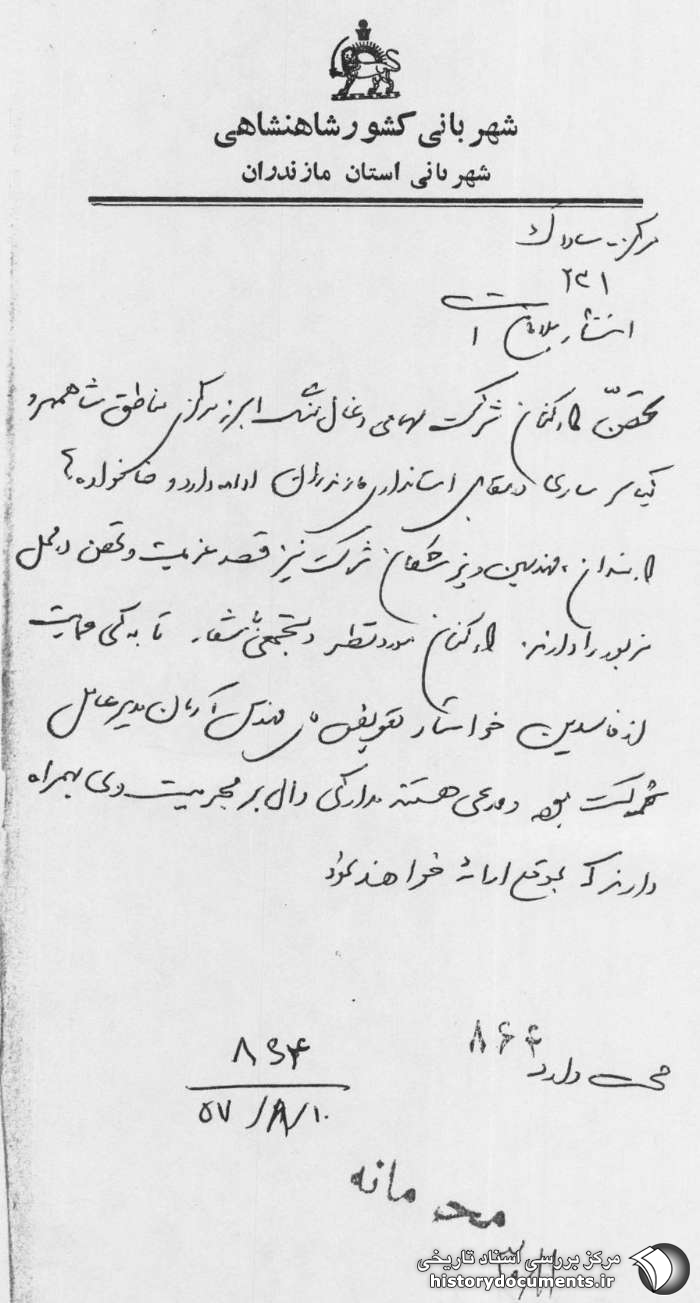 شهربانی کشور شاهنشاهی
شهربانی استان مازندران
مرکز ساواک
۲۳۱
انتشار ۱
تحصن کارکنان شرکت سهامی ذغال سنگ البرز مرکزی مناطق شاهمیرزاد و
ساری در مقابل استانداری مازندران ادامه دارد و خانواده‌های
کارمندان، مهندسین و پزشکان شرکت نیز قصد عزیمت و تحصن در محل
مزبور را دارند. کارکنان مورد نظر در تجمع
از فاسدین خواستار تعویض مهندس آرمان مدیر عامل
شرکت بوده و مدعی هستند مدارکی دال بر مجرمیت وی بهمراه
دارند که بموقع ارائه خواهند نمود
۸۶۴
۸۶۴
۵۷/۸/۱۰
محرمانه
مرکز بررسی اسناد تاریخی
historydocuments.ir